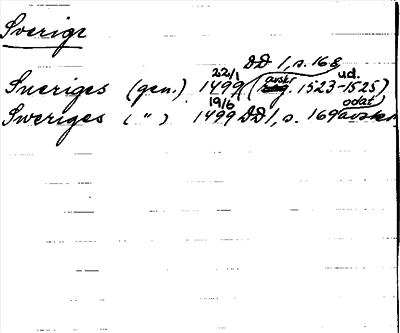 Sverige
DD 1, s. 168
Sneriges (gen.) 22/1 1499 (avskr. 1523-1525) ud.
Sweriges ( " ) 19/6 1499 DD 1, s. 169 odat avskr